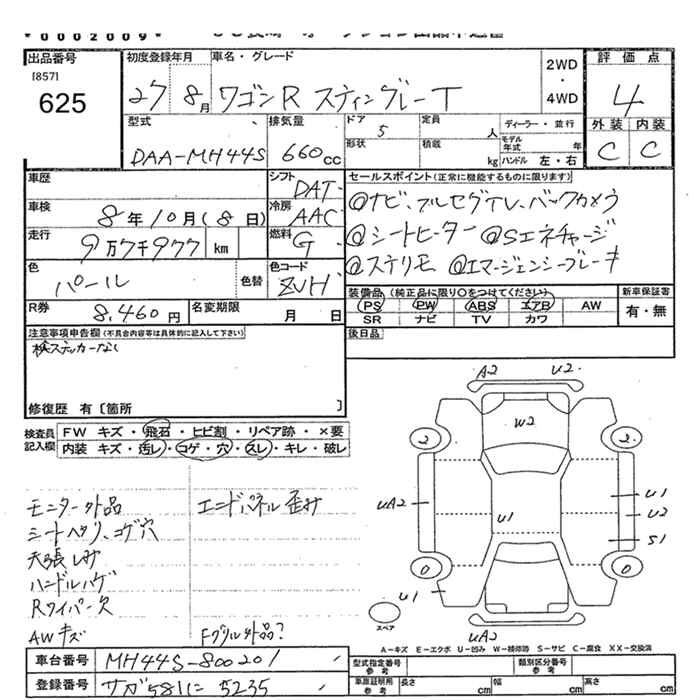 *0002009*
出品番号
[857]
625
初度登録年月 車名・グレード
27 8月 ワゴンR スティングレーT
2WD
・
4WD
評価点
4
外装 内装
C C
型式 排気量 ドア 定員 ディーラー・並行
DAA-MH44S 660cc 5 人
形状 積載 kg モデル年式 年
ハンドル 左・右
車歴 シフト DAT
車検 8年10月(8日) 冷房 AAC
走行 9万7千977 km 燃料 G
色 パール 色替 色コード ZVH
R券 8,460円 名変期限 月 日
セールスポイント(正常に機能するものに限ります)
@ナビ、フルセグTV、バックカメラ
@シートヒーター @Sエネチャージ
@ステリモ @エマージェンシーブレーキ
装備品(純正品に限り○をつけてください) 新車保証書
PS PW ABS エアB AW 有・無
SR ナビ TV カワ
後日品
注意事項申告欄(不具合内容等は具体的に記入して下さい)
検ステッカーなし
修復歴 有〔箇所
検査員記入欄
FW キズ・飛石・ヒビ割・リペア跡・×要
内装 キズ・汚レ・コゲ・穴・スレ・キレ・破レ
モニター外品 エンドパネル歪み
シートヘタリ、コゲ穴
天張しみ
ハンドルハゲ
Rワイパー欠
AWキズ Fグリル外品?
A2 U2
W2
2 2
UA2 U1 U1
U2
S1
0 0
U1
スペア
UA2
A-キズ E-エクボ U-凹み W-補修跡 S-サビ C-腐食 XX-交換済
車台番号 MH44S-800201
登録番号 サガ581に5235
型式指定番号 参考 類別区分番号 参考
車庫証明用 参考 長さ cm 幅 cm 高さ cm